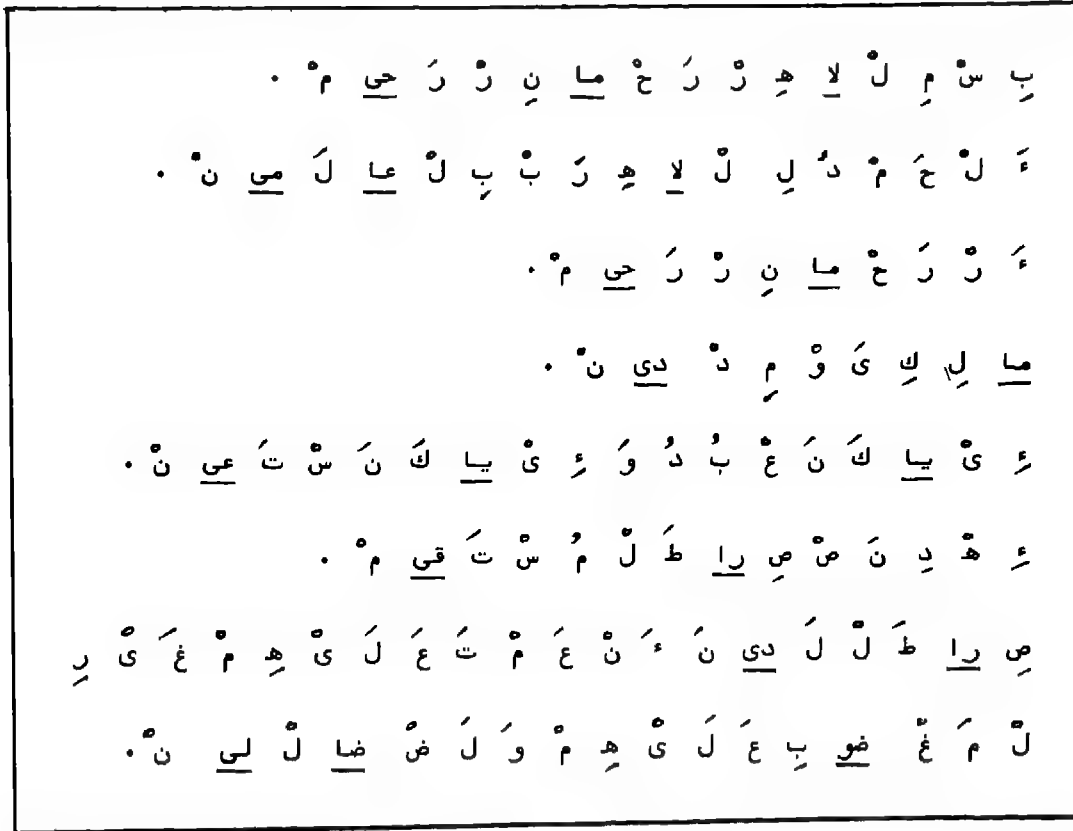 بِ سْ مِ لْ لا هِ رْ رَ حْ ما نِ رْ رَ حی مْ .
ءَ لْ حَ مْ دُ لِ لْ لا هِ رَ بْ بِ لْ عا لَ می نْ .
ءَ رْ رَ حْ ما نِ رْ رَ حی مْ .
ما لِ كِ یَ وْ مِ دْ دی نْ .
ءِ یْ یا كَ نَ عْ بُ دُ وَ ءِ یْ یا كَ نَ سْ تَ عی نْ .
ءِ هْ دِ نَ صْ صِ را طَ لْ مُ سْ تَ قی مْ .
صِ را طَ لْ لَ دی نَ ءَ نْ عَ مْ تَ عَ لَ یْ هِ مْ غَ یْ رِ
لْ مَ غّ ضو بِ عَ لَ یْ هِ مْ وَ لَ ضْ ضا لْ لی نْ .